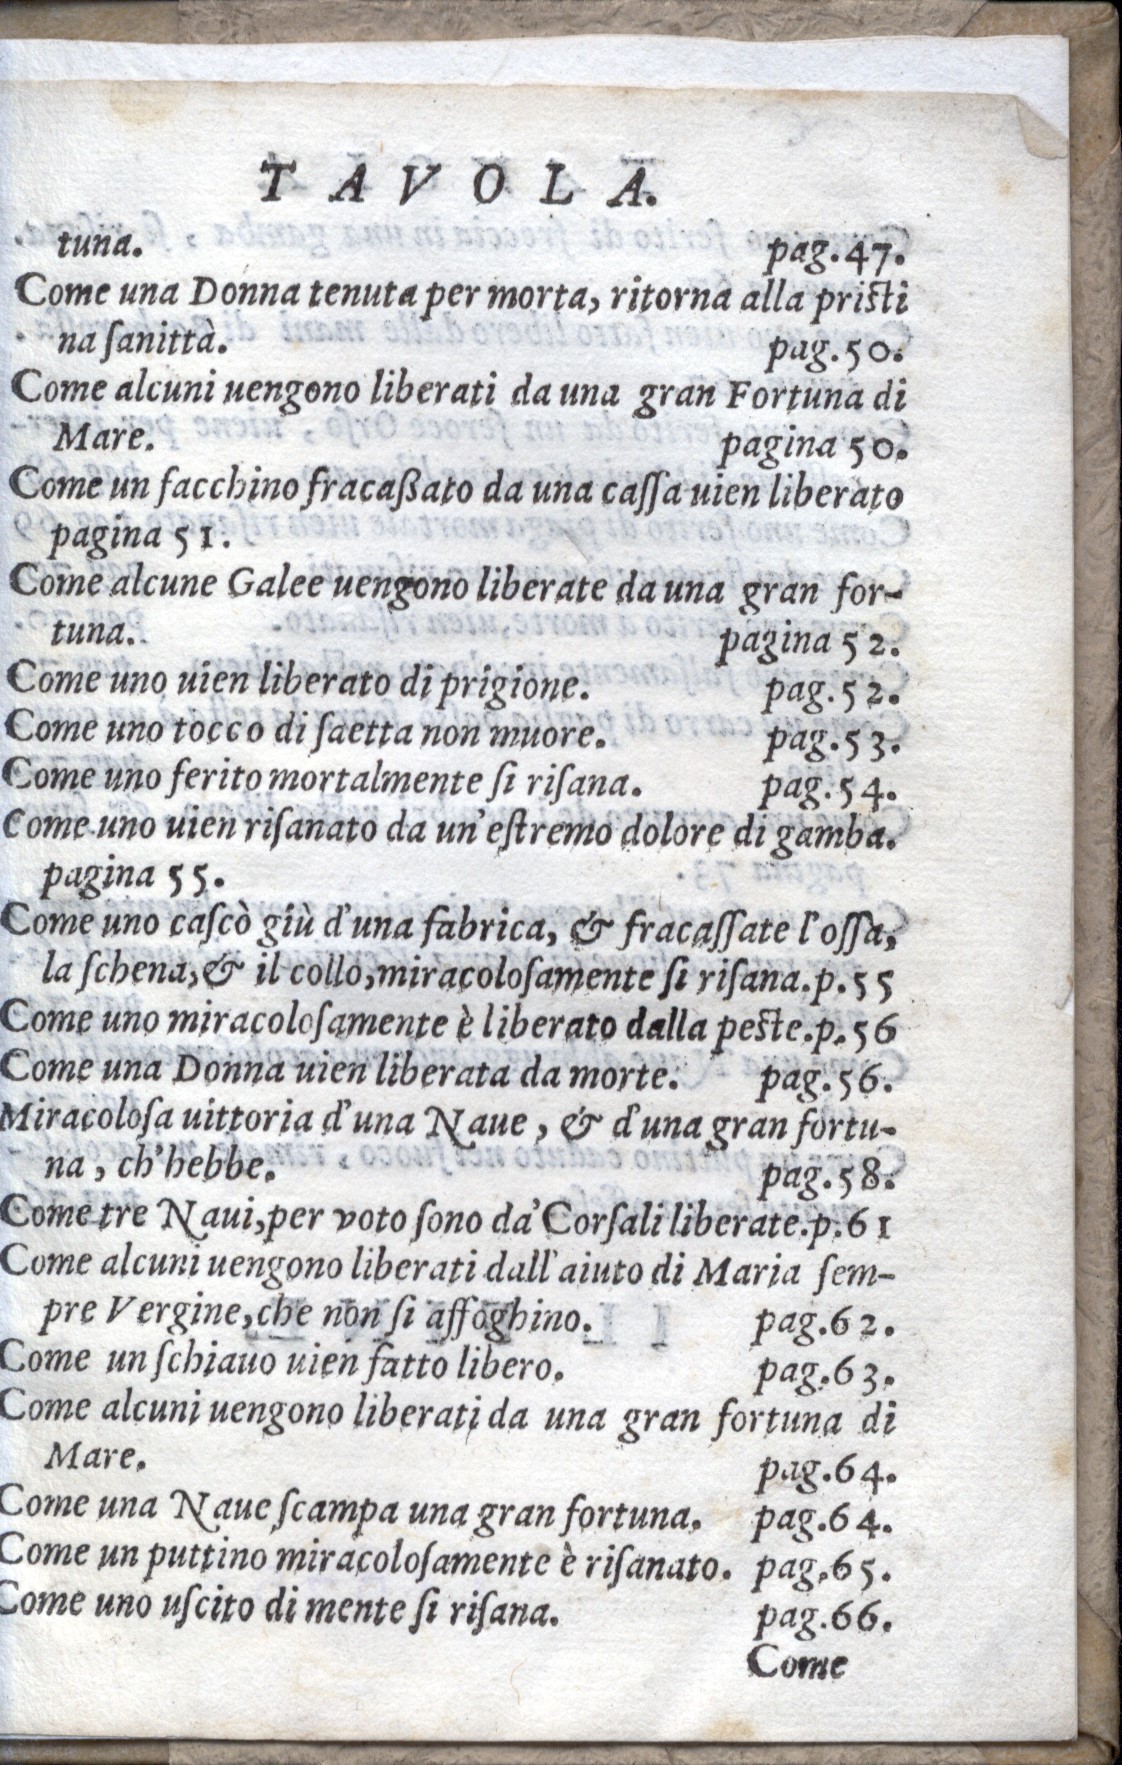 TAVOLA.
tuna. pag. 47.
Come una Donna tenuta per morta, ritorna alla pristi
na ſanittà. pag. 50.
Come alcuni uengono liberati da una gran Fortuna di
Mare. pagina 50.
Come un facchino fracaßato da una caſſa uien liberato
pagina 51.
Come alcune Galee uengono liberate da una gran for-
tuna. pagina 52.
Come uno uien liberato di prigione. pag. 52.
Come uno tocco di ſaetta non muore. pag. 53.
Come uno ferito mortalmente ſi riſana. pag. 54.
Come uno uien riſanato da un'eſtremo dolore di gamba.
pagina 55.
Come uno caſcò giù d'una fabrica, & fracaſſate l'oſſa,
la ſchena, & il collo, miracoloſamente ſi riſana. p. 55
Come uno miracoloſamente è liberato dalla peste. p. 56
Come una Donna uien liberata da morte. pag. 56.
Miracoloſa uittoria d'una Naue, & d'una gran fortu-
na, ch'hebbe. pag. 58.
Come tre Naui, per voto ſono da' Corſali liberate. p. 61
Come alcuni uengono liberati dall'aiuto di Maria ſem-
pre Vergine, che non ſi affoghino. pag. 62.
Come un ſchiauo uien fatto libero. pag. 63.
Come alcuni uengono liberati da una gran fortuna di
Mare. pag. 64.
Come una Naue ſcampa una gran fortuna. pag. 64.
Come un puttino miracoloſamente è riſanato. pag. 65.
Come uno uſcito di mente ſi riſana. pag. 66.
Come